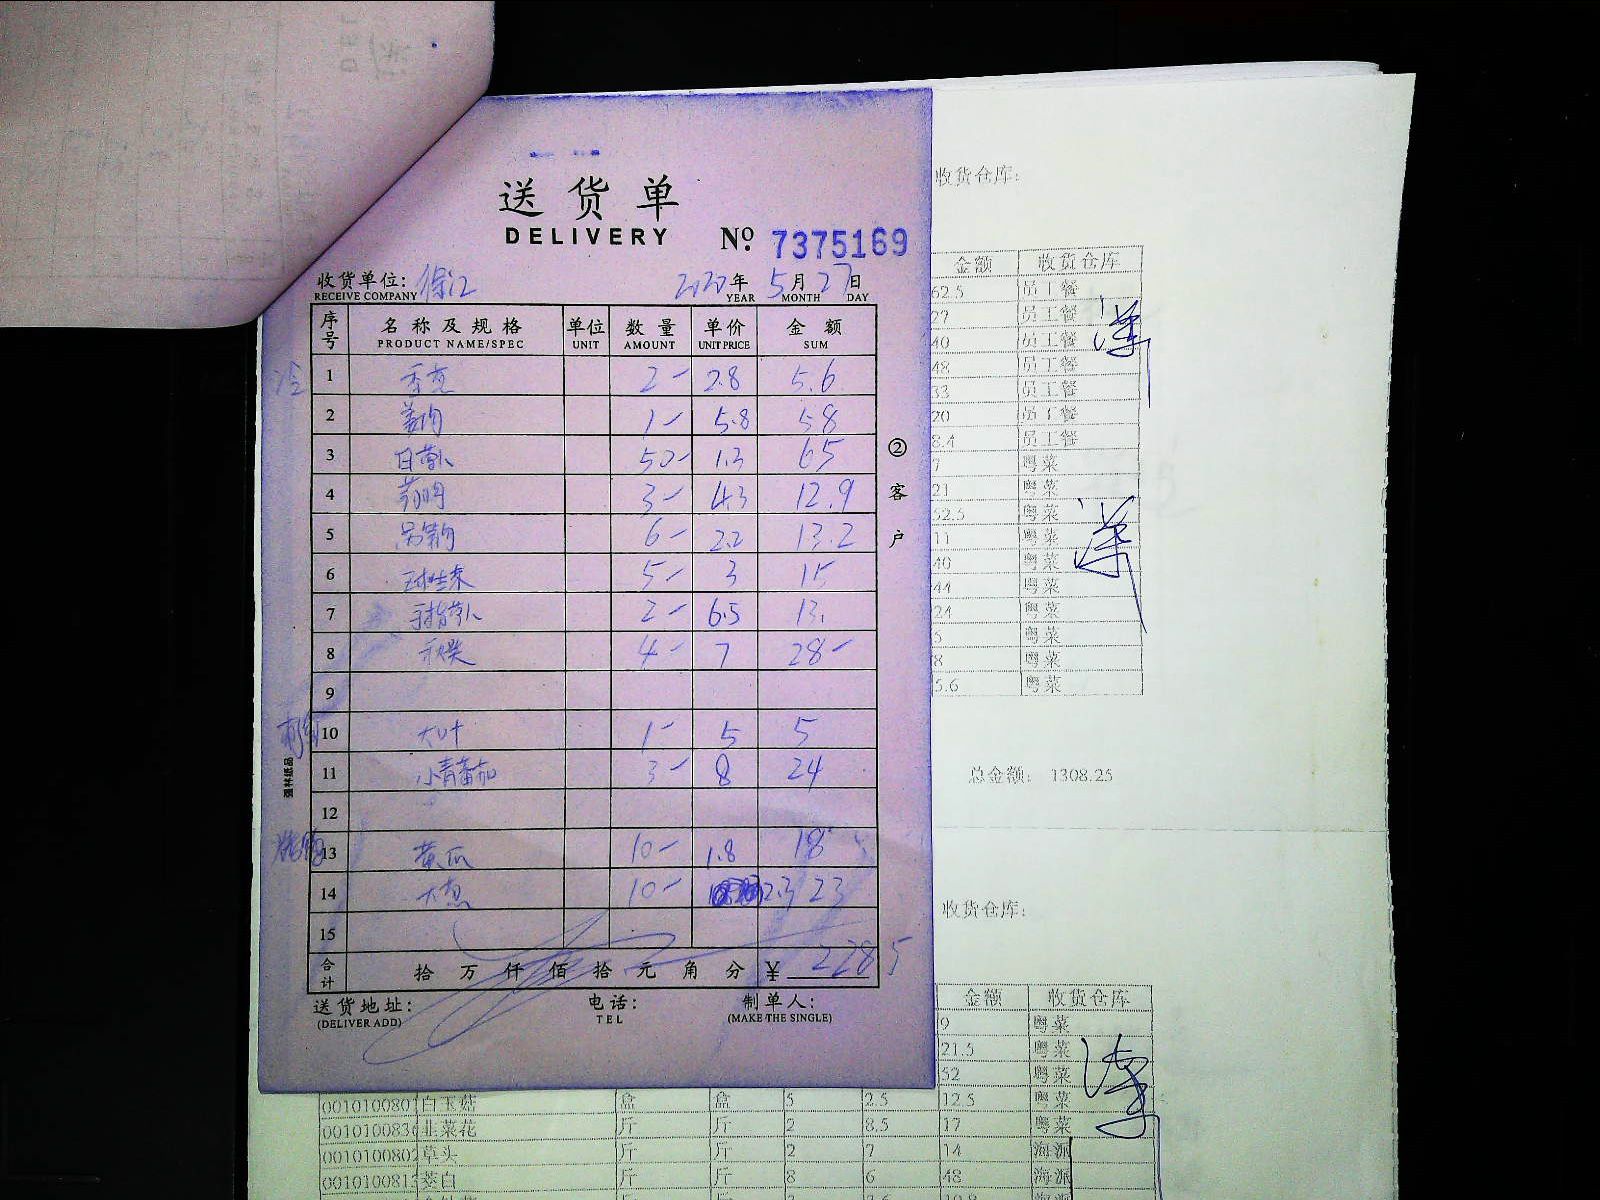 送货单
DELIVERY
№ 7375169
收货单位: 徐江 2020年 5月 27日
RECEIVE COMPANY YEAR MONTH DAY
序号 名称及规格 单位 数量 单价 金额
PRODUCT NAME/SPEC UNIT AMOUNT UNIT PRICE SUM
1 香克 2- 2.8 5.6
2 1- 5.8 5.8
3 50- 1.3 65
4 3- 4.3 12.9
5 6- 2.2 13.2
6 球生菜 5- 3 15
7 2- 6.5 13.
8 4- 7 28-
9
10 大叶 1- 5 5
11 小青番茄 3- 8 24
12
13 黄瓜 10- 1.8 18
14 大葱 10- 2.3 23
15
合计 拾 万 仟 佰 拾 元 角 分 ¥ 228.5
送货地址: 电话: 制单人:
(DELIVER ADD) TEL (MAKE THE SINGLE)
②客户
强林纸品
收货仓库:
金额 收货仓库
62.5 员工餐
27 员工餐
40 员工餐
48 员工餐
33 员工餐
20 员工餐
8.4 员工餐
7 粤菜
21 粤菜
52.5 粤菜
11 粤菜
40 粤菜
44 粤菜
24 粤菜
5 粤菜
8 粤菜
5.6 粤菜
总金额: 1308.25
收货仓库:
金额 收货仓库
9 粤菜
21.5 粤菜
52 粤菜
0010100801 白玉菇 盒 盒 5 2.5 12.5 粤菜
0010100836 韭菜花 斤 斤 2 8.5 17 粤菜
0010100802 草头 斤 斤 2 7 14 海派
0010100813 茭白 斤 斤 8 6 48 海派